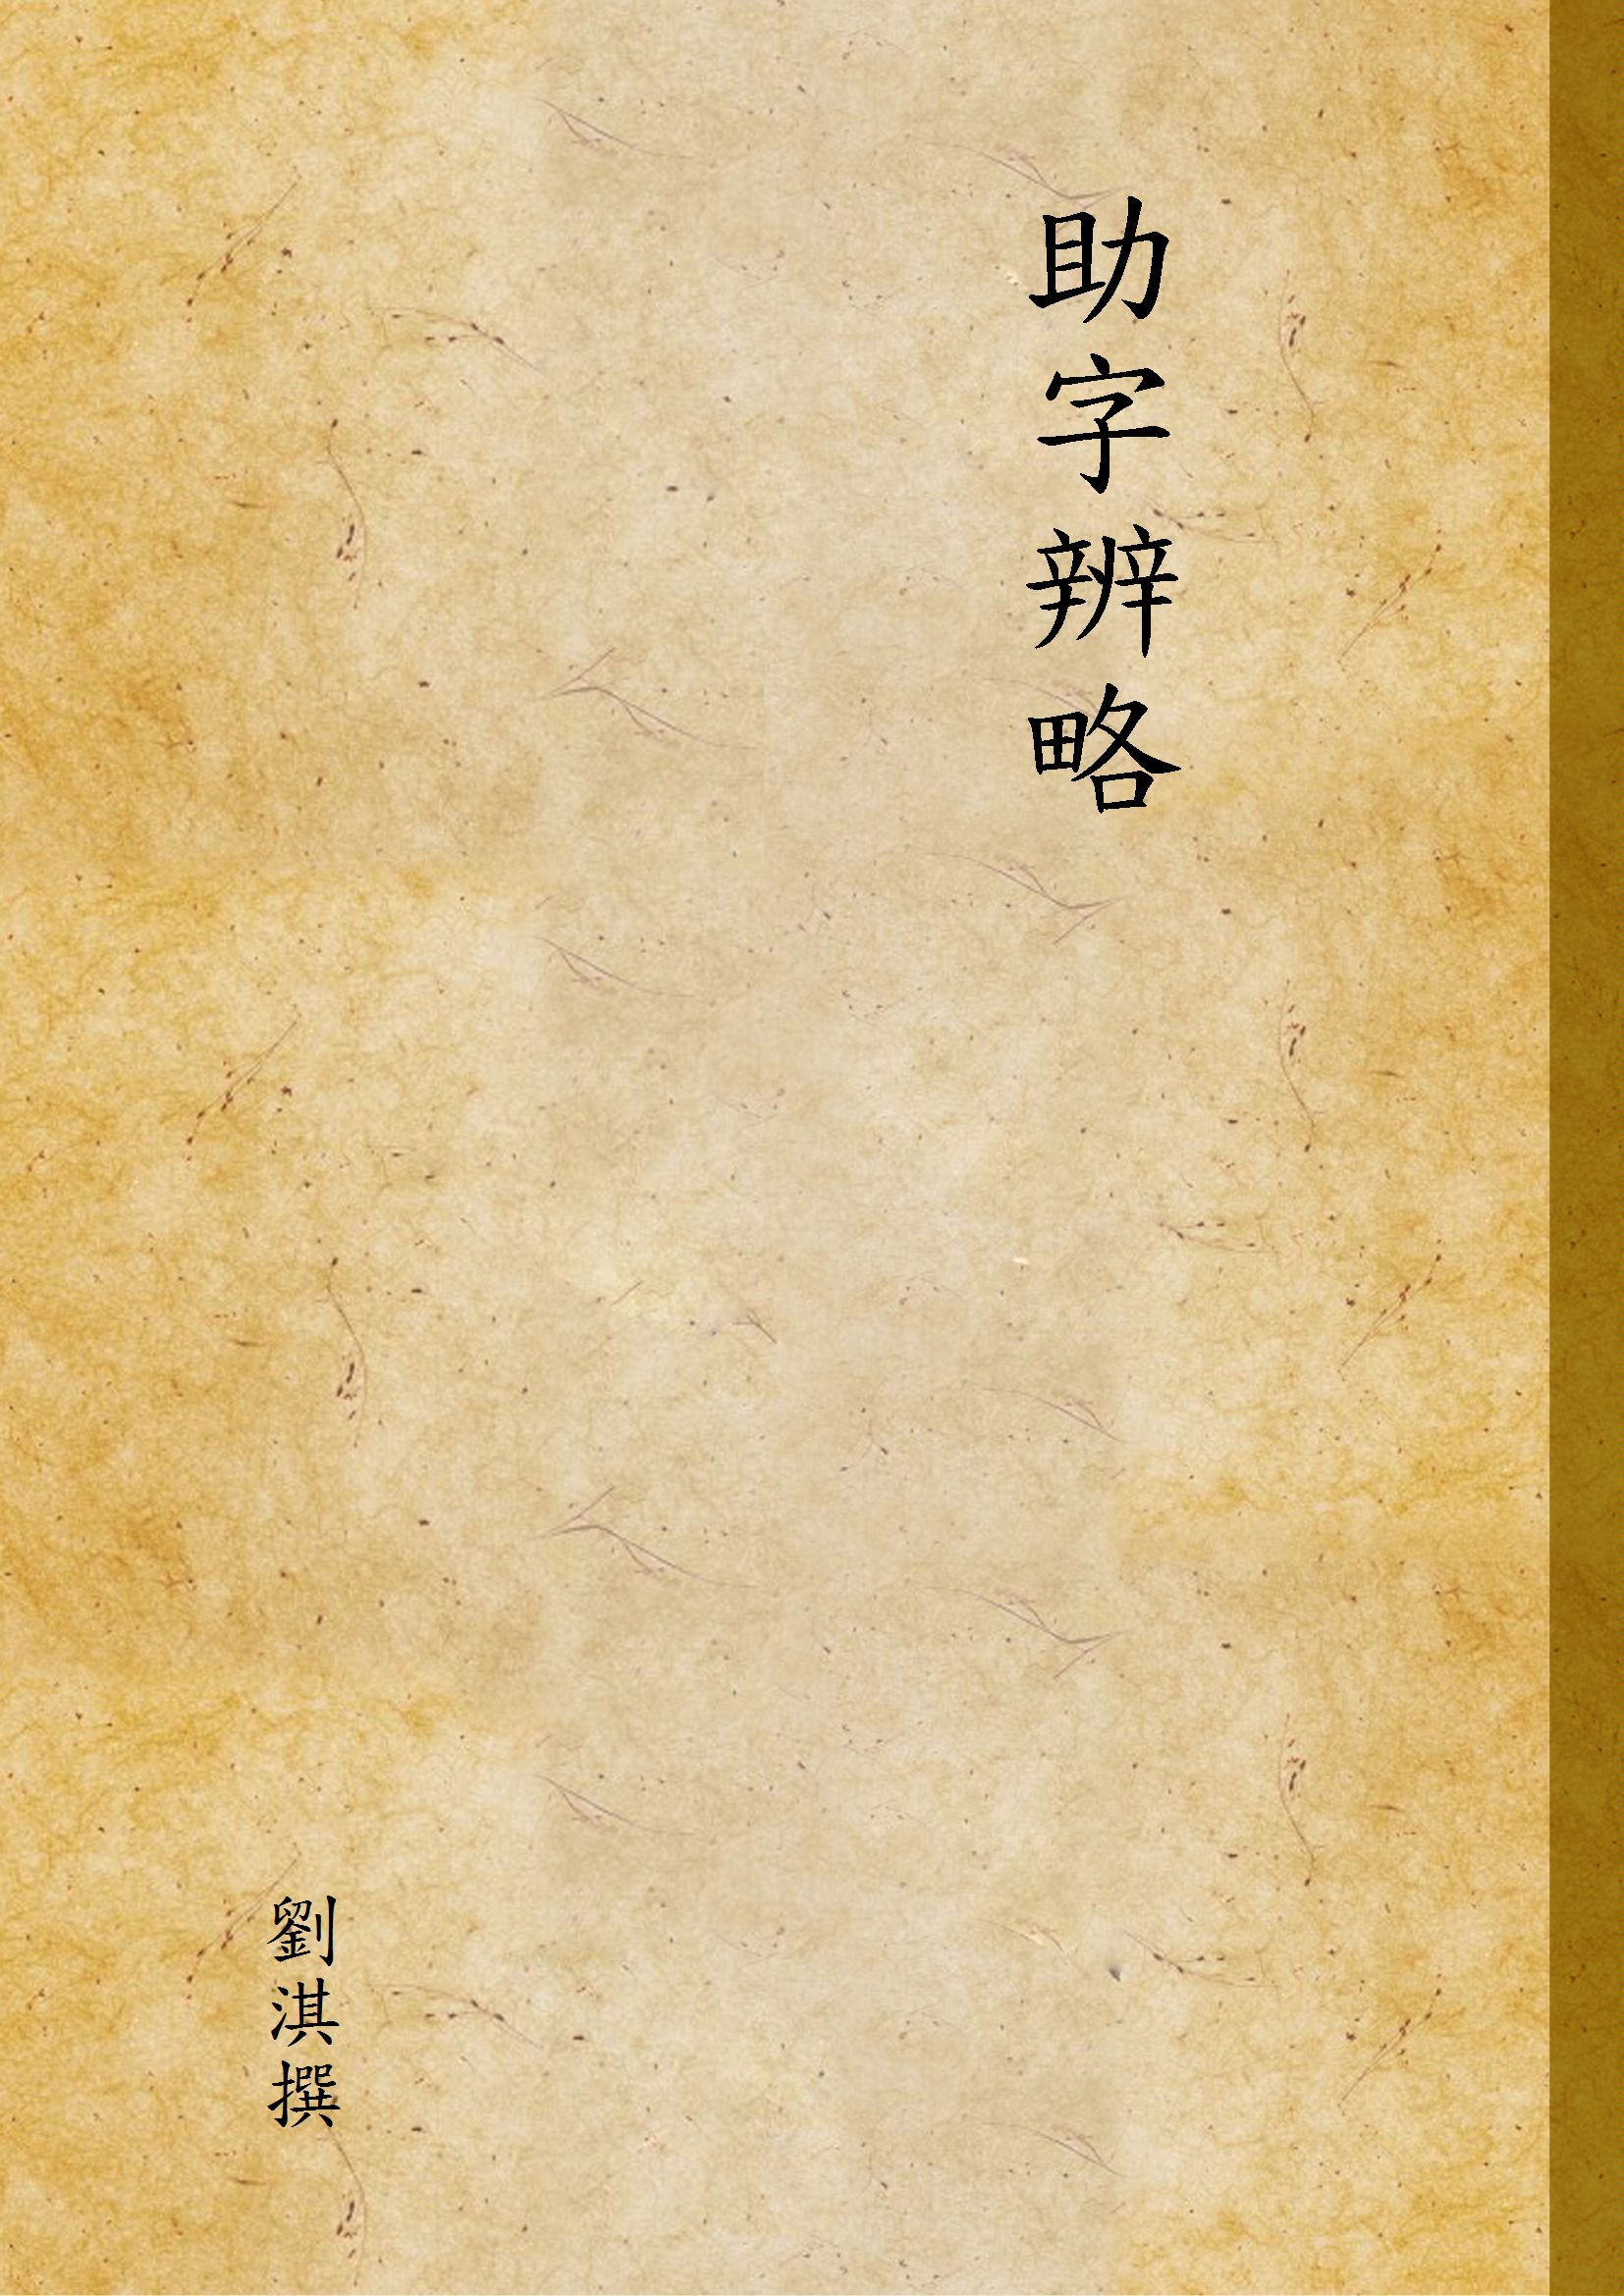 助字辨略
劉淇撰